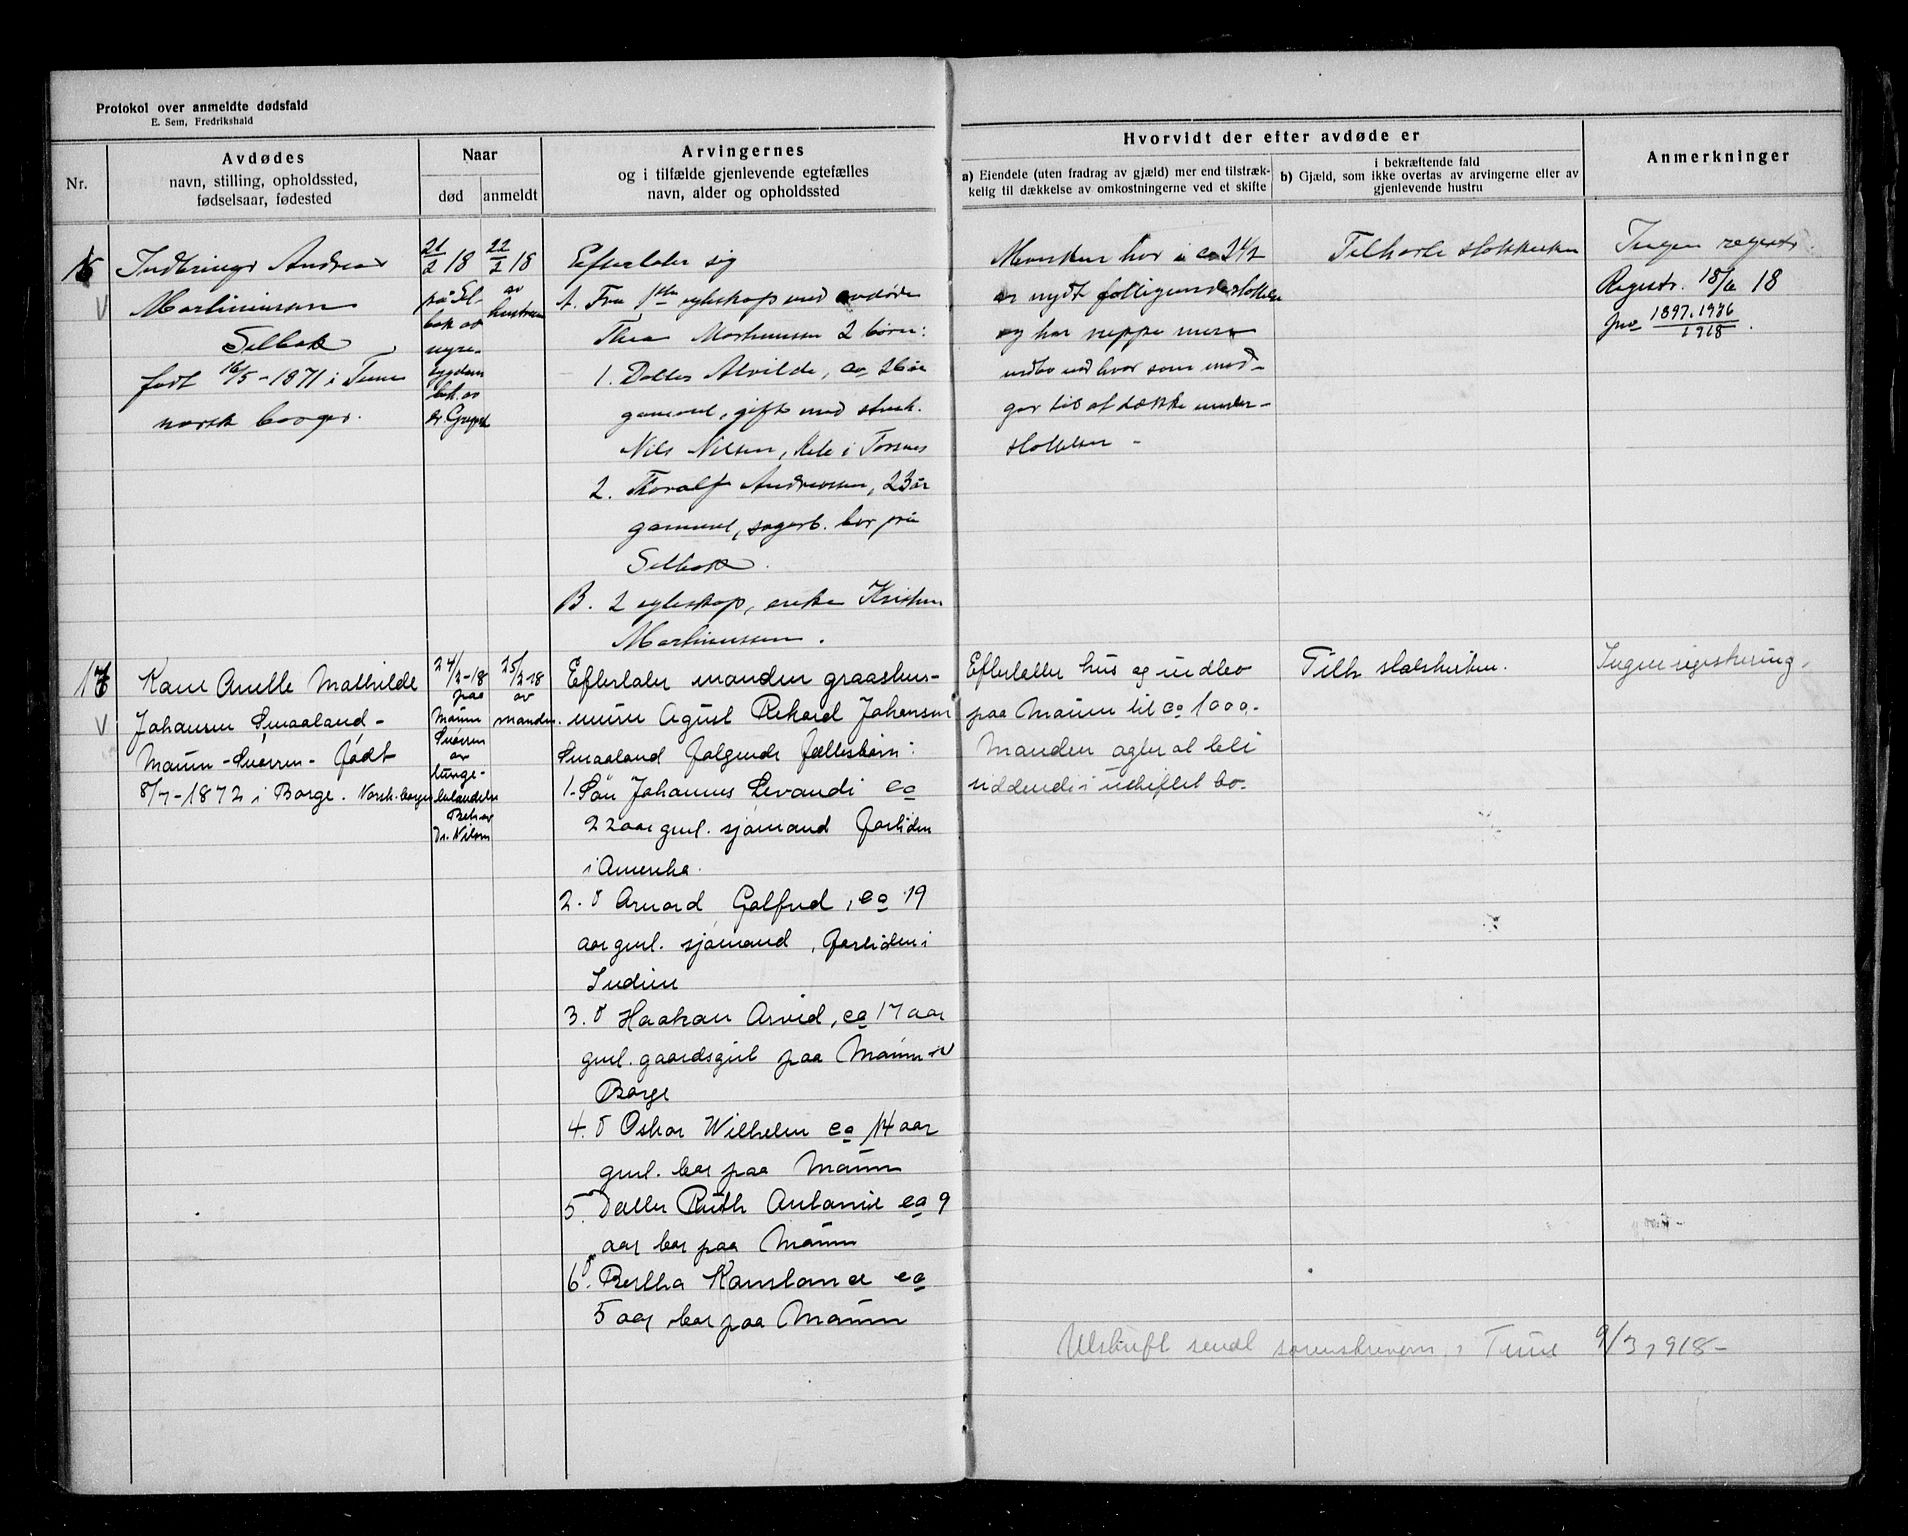 Protokol over anmeldte dødsfald
E. Sem, Fredrikshald
Nr.
Avdødes
navn, stilling, opholdssted,
fødselsaar, fødested
Naar
død
anmeldt
Arvingernes
og i tilfælde gjenlevende egtefælles
navn, alder og opholdssted
Hvorvidt der efter avdøde er
a) Eiendele (uten fradrag av gjæld) mer end tilstræk-
kelig til dækkelse av omkostningerne ved et skifte
i bekræftende fald
b) Gjæld, som ikke overtas av arvingerne eller av
gjenlevende hustru
Anmerkninger
Andreas
Martiniussen
Selbak
født 16/5-1871 i Tune
norsk borger.
21/2 18
22/2 18
av
hustruen
Efterlater sig
A. Fra 1ste egteskap med avdøde
Thea Martinussen 2 børn:
1. Datter Alvilde, ca 26 år
gammel, gift med
Nils Nilsen, i Torsnes
2. Thoralf Andreassen, 23 år
gammel, sagarb. bor på
Selbak.
B. 2 egteskap, enke Kristine
Martinussen.
ca 2 1/2
år nydt fattigunderstøttelse
og har neppe mere
indbo end hvor som med-
går til at dække under-
støttelsen -
Tilhørte statskirken
Ingen registr.
Registr. 18/6 18
jno 1897.1936/1918.
Kare Anette Mathilde
Johansen Smaaland -
Maum - - født
8/7-1872 i Borge. Norsk borger
24/2-18
paa
Maum
av
lunge-
betændelse
Beh. av
Dr. Nilsen
25/2-18
av
manden.
Efterlater manden graastens-
murer Agust Rikard Johansen
Smaaland følgende fællesbørn:
1. Søn Johannes Levandi ca
22 aar gml. sjømand fortiden
i Amerika.
2. d Arnord Galfred, ca 19
aar gml. sjømand, fortiden i
Indien
3. d Haakon Arvid, ca 17 aar
gml. gaardsgut paa Maum i
Borge
4. d Oskar Wilhelm ca 14 aar
gml. bor paa Maum
5. Datter Ruth Antonie ca 9
aar bor paa Maum
6. d Bertha Konstance ca
5 aar bor paa Maum
Efterlater hus og indbo
paa Maum til ca 1000,-
Manden agter at bli
siddende i uskiftet bo.
Tilh statskirken.
Ingen registrering.
Utskrift sendt sorenskriveren i Tune 9/3 1918-